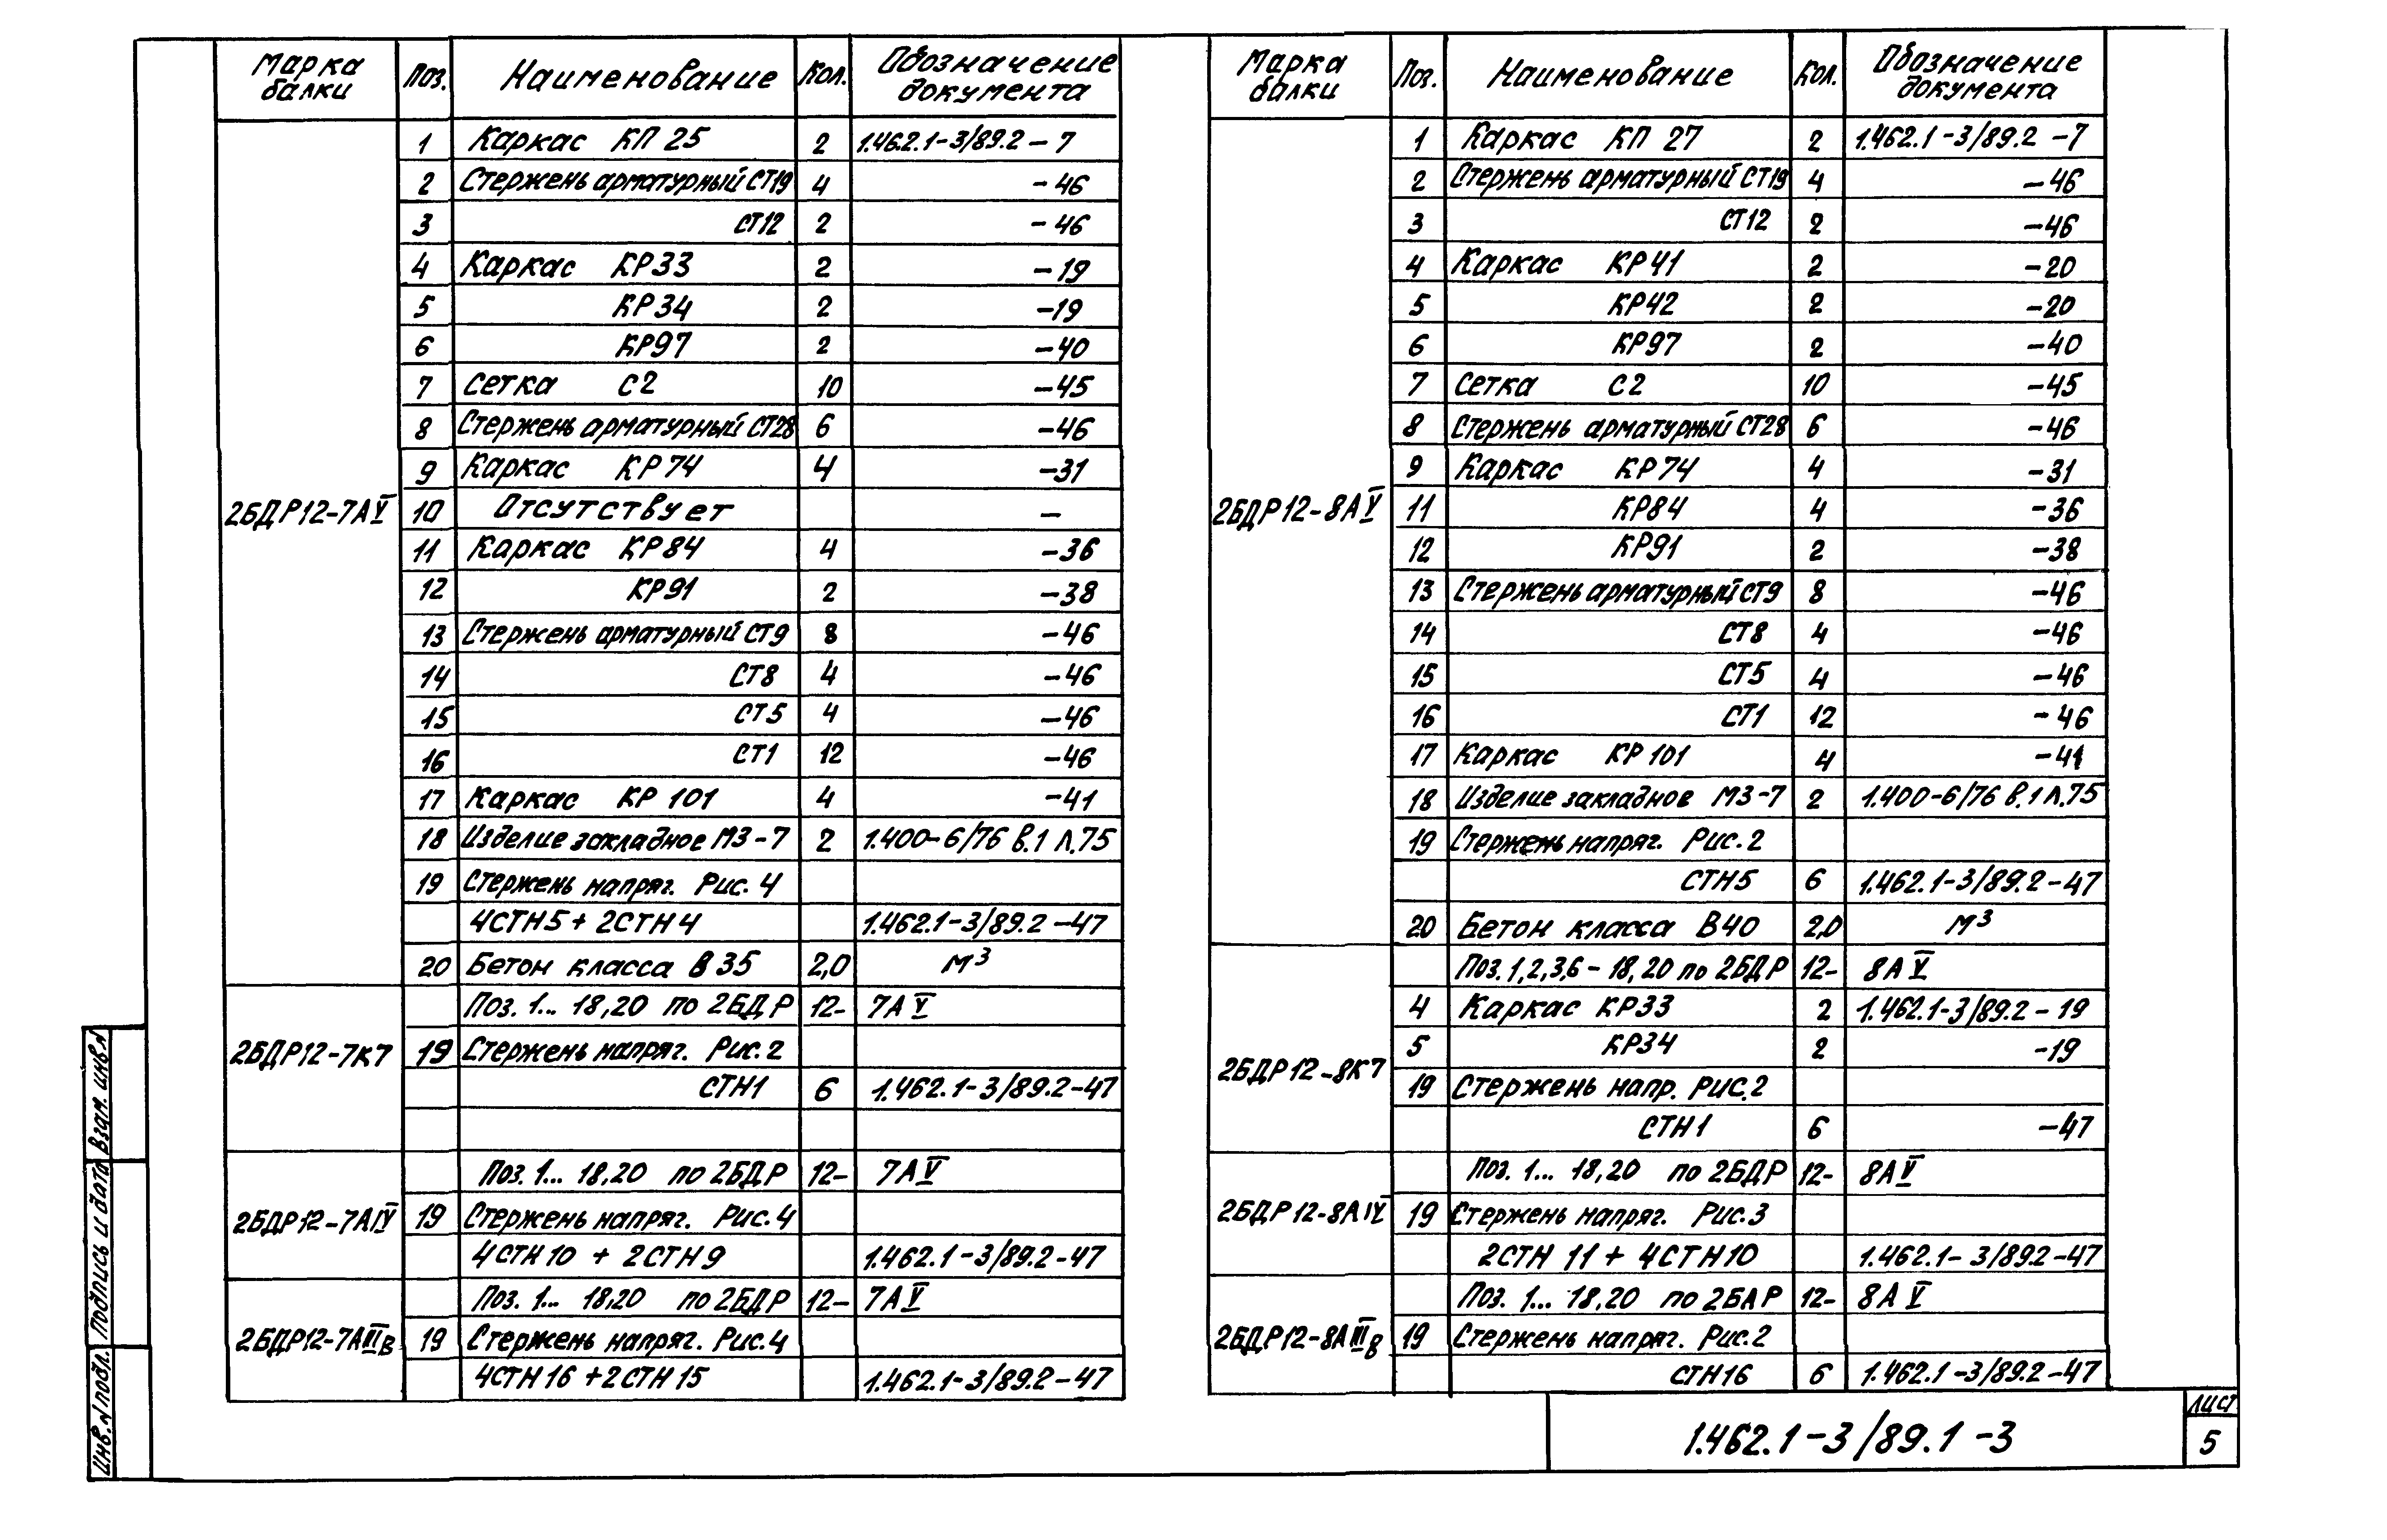 Марка балки Поз. Наименование Кол. Обозначение документа
2БДР12-7АV
1 Каркас КП 25 2 1.462.1-3/89.2-7
2 Стержень арматурный СТ19 4 -46
3 СТ12 2 -46
4 Каркас КР33 2 -19
5 КР34 2 -19
6 КР97 2 -40
7 Сетка С2 10 -45
8 Стержень арматурный СТ28 6 -46
9 Каркас КР74 4 -31
10 Отсутствует –
11 Каркас КР84 4 -36
12 КР91 2 -38
13 Стержень арматурный СТ9 8 -46
14 СТ8 4 -46
15 СТ5 4 -46
16 СТ1 12 -46
17 Каркас КР 101 4 -41
18 Изделие закладное МЗ-7 2 1.400-6/76 в.1 л.75
19 Стержень напряг. Рис. 4
4СТН5 + 2СТН4 1.462.1-3/89.2-47
20 Бетон класса В35 2,0 м³
2БДР12-7К7
Поз. 1... 18,20 по 2БДР 12- 7АV
19 Стержень напряг. Рис. 2
СТН1 6 1.462.1-3/89.2-47
2БДР12-7АIV
Поз. 1... 18,20 по 2БДР 12- 7АV
19 Стержень напряг. Рис. 4
4СТН10 + 2СТН9 1.462.1-3/89.2-47
2БДР12-7АIIIв
Поз. 1... 18,20 по 2БДР 12- 7АV
19 Стержень напряг. Рис. 4
4СТН16 + 2СТН15 1.462.1-3/89.2-47
Марка балки Поз. Наименование Кол. Обозначение документа
2БДР12-8АV
1 Каркас КП 27 2 1.462.1-3/89.2-7
2 Стержень арматурный СТ19 4 -46
3 СТ12 2 -46
4 Каркас КР41 2 -20
5 КР42 2 -20
6 КР97 2 -40
7 Сетка С2 10 -45
8 Стержень арматурный СТ28 6 -46
9 Каркас КР74 4 -31
11 КР84 4 -36
12 КР91 2 -38
13 Стержень арматурный СТ9 8 -46
14 СТ8 4 -46
15 СТ5 4 -46
16 СТ1 12 -46
17 Каркас КР 101 4 -41
18 Изделие закладное МЗ-7 2 1.400-6/76 в.1 л.75
19 Стержень напряг. Рис. 2
СТН5 6 1.462.1-3/89.2-47
20 Бетон класса В40 2,0 м³
2БДР12-8К7
Поз. 1,2,3,6-18,20 по 2БДР 12- 8АV
4 Каркас КР33 2 1.462.1-3/89.2-19
5 КР34 2 -19
19 Стержень напр. Рис. 2
СТН1 6 -47
2БДР12-8АIV
Поз. 1... 18,20 по 2БДР 12- 8АV
19 Стержень напряг. Рис. 3
2СТН 11 + 4СТН10 1.462.1-3/89.2-47
2БДР12-8АIIIв
Поз. 1... 18,20 по 2БАР 12- 8АV
19 Стержень напряг. Рис. 2
СТН16 6 1.462.1-3/89.2-47
Инв.№ подл. Подпись и дата Взам. инв.№
1.462.1-3/89.1-3
Лист
5